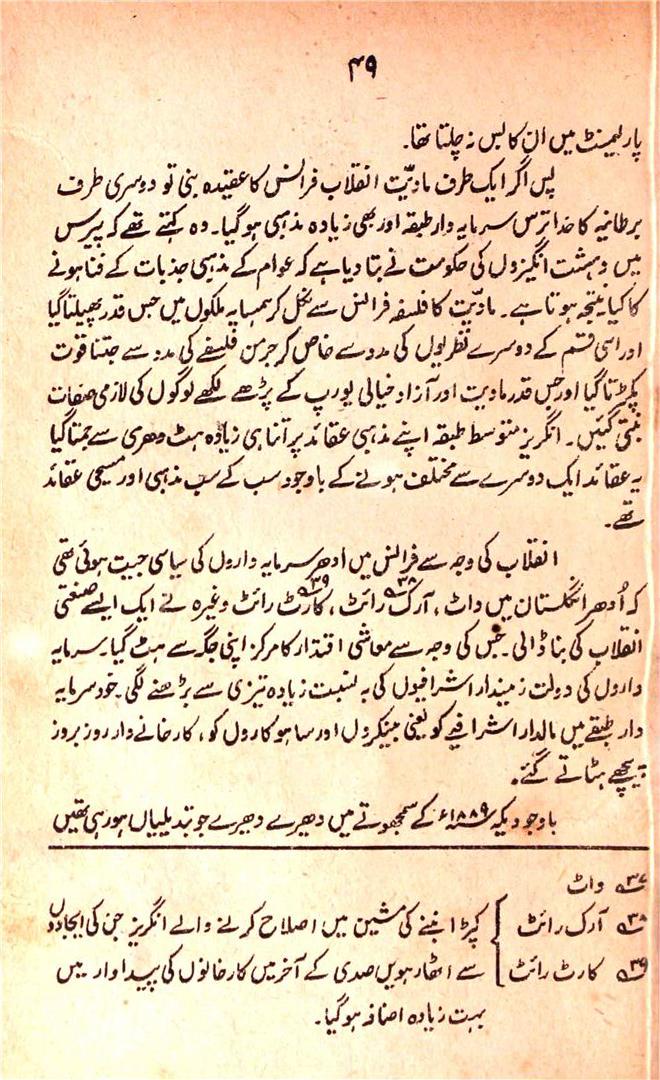 ۴۹
پارلیمنٹ میں ان کا بس نہ چلتا تھا۔
پس اگر ایک طرف مادیّت انقلاب فرانس کا عقیدہ بنی تو دوسری طرف
برطانیہ کا خدا ترس سرمایہ دار طبقہ اور بھی زیادہ مذہبی ہو گیا۔ وہ کہتے تھے کہ پیرس
میں دہشت انگیزوں کی حکومت نے بتا دیا ہے کہ عوام کے مذہبی جذبات کے فنا ہونے
کا کیا نتیجہ ہوتا ہے۔ مادیّت کا فلسفہ فرانس سے نکل کر ہمسایہ ملکوں میں جس قدر پھیلتا گیا
اور اسی قسم کے دوسرے نظریوں کی مدد سے خاص کر جرمن فلسفے کی مدد سے جتنا قوت
پکڑتا گیا اور جس قدر مادیت اور آزاد خیالی یورپ کے پڑھے لکھے لوگوں کی لازمی صفات
بنتی گئیں۔ انگریز متوسط طبقہ اپنے مذہبی عقائد پر اتنا ہی زیادہ ہٹ دھری سے جمتا گیا
یہ عقائد ایک دوسرے سے مختلف ہونے کے باوجود سب کے سب مذہبی اور مسیحی عقائد
تھے۔
انقلاب کی وجہ سے فرانس میں ادھر سرمایہ داروں کی سیاسی جیت ہوئی تھی
کہ اُدھر انگلستان میں واٹ، آرک رائٹ۳۸، کارٹ رائٹ۳۹ وغیرہ نے ایک ایسے صنعتی
انقلاب کی بنا ڈالی۔ جس کی وجہ سے معاشی اقتدار کا مرکز اپنی جگہ سے ہٹ گیا۔ سرمایہ
داروں کی دولت زمیندار اشرافیوں کی بہ نسبت زیادہ تیزی سے بڑھنے لگی۔ خود سرمایہ
دار طبقے میں مالدار اشرافیے کو یعنی بینکروں اور ساہوکاروں کو، کارخانے دار روز بروز
پیچھے ہٹاتے گئے۔
باوجودیکہ ۱۸۸۹ء کے سمجھوتے میں دھیرے دھیرے جو تبدیلیاں ہو رہی تھیں
۳۷ واٹ
۳۸ آرک رائٹ } کپڑا بننے کی مشین میں اصلاح کرنے والے انگریز جن کی ایجادوں
۳۹ کارٹ رائٹ } سے اٹھارہویں صدی کے آخر میں کارخانوں کی پیداوار میں
بہت زیادہ اضافہ ہو گیا۔